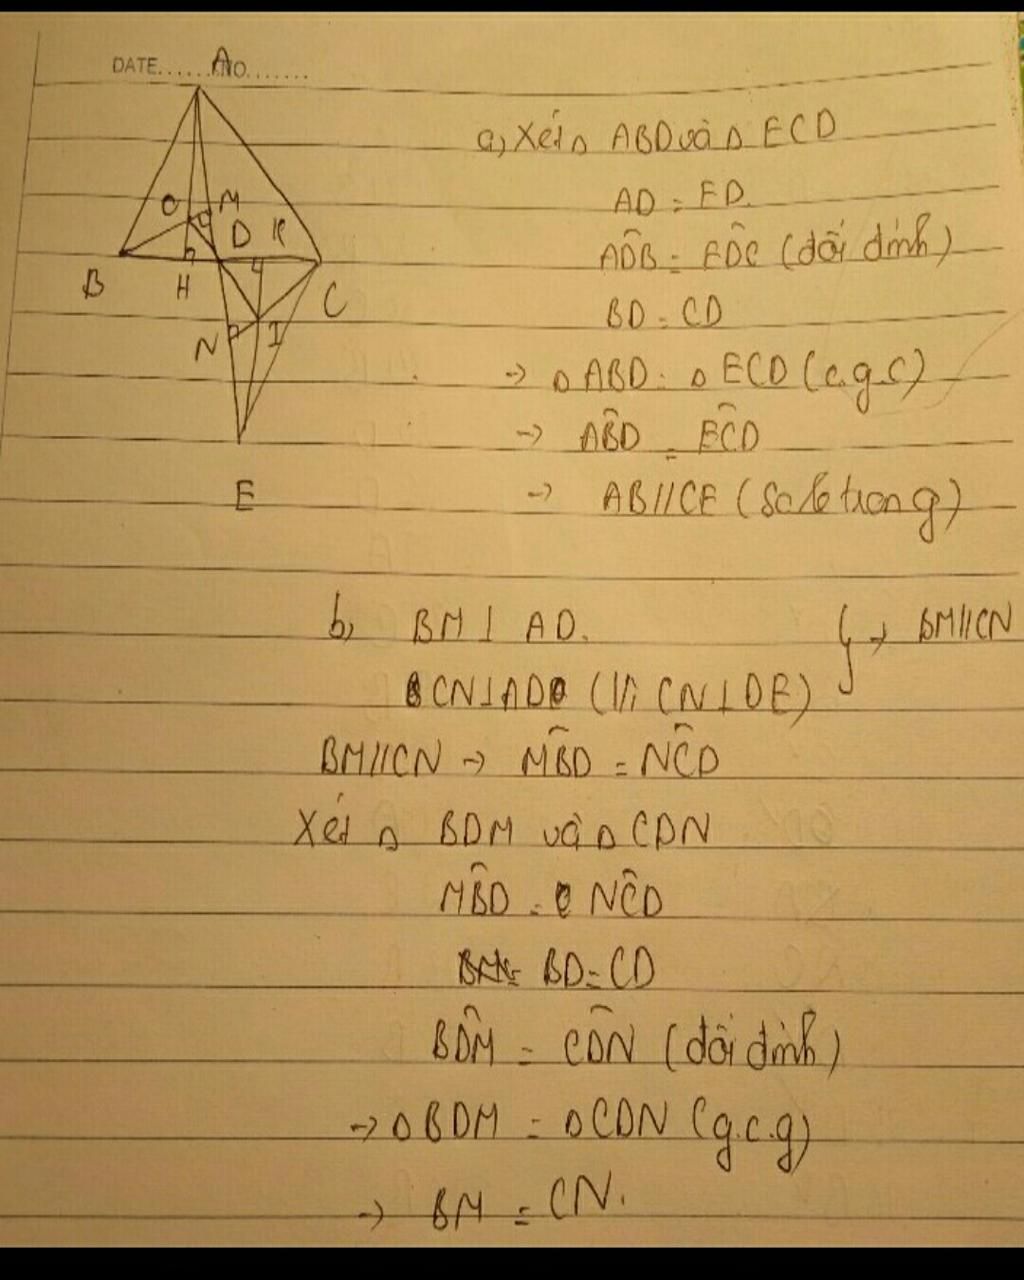 DATE......NO.......
A
O M
D K
B H C
N I
E
a, Xét Δ ABD và Δ ECD
AD = ED.
AD̂B = ED̂C (đối đỉnh)
BD = CD
-> Δ ABD = Δ ECD (c.g.c)
-> AB̂D = EĈD
-> AB//CE (so le trong)
b, BM ⊥ AD.
CN ⊥ AD (Vì CN ⊥ DE)
} -> BM//CN
BM//CN -> MB̂D = NĈD
Xét Δ BDM và Δ CDN
MB̂D = NĈD
BD = CD
BD̂M = CD̂N (đối đỉnh)
-> Δ BDM = Δ CDN (g.c.g)
-> BM = CN.